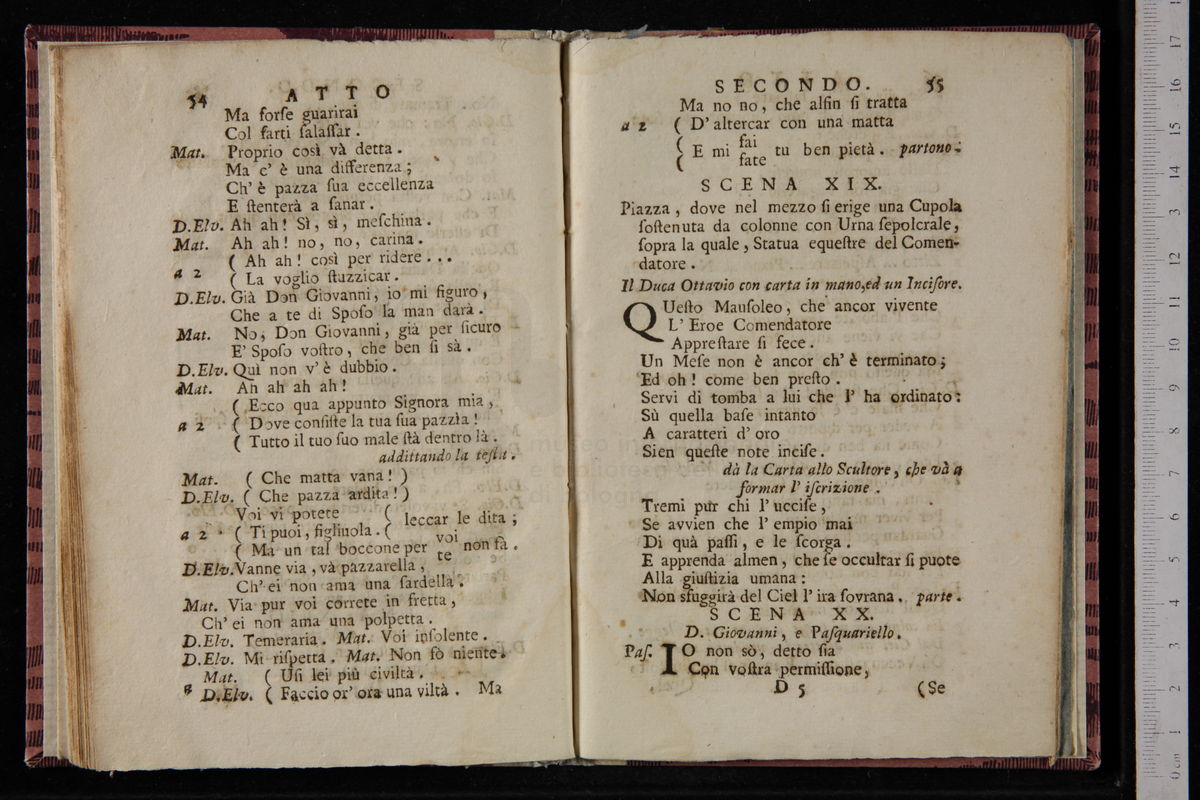 54 ATTO
Ma forſe guarirai
Col farti ſalaſſar.
Mat. Proprio così và detta.
Ma c' è una differenza;
Ch' è pazza ſua eccellenza
E ſtenterà a ſanar.
D.Elv. Ah ah! Sì, sì, meſchina.
Mat. Ah ah! no, no, carina.
( Ah ah! così per ridere...
a 2 ( La voglio ſtuzzicar.
D.Elv. Già Don Giovanni, io mi figuro,
Che a te di Spoſo la man darà.
Mat. No, Don Giovanni, già per ſicuro
E' Spoſo voſtro, che ben ſi sà.
D.Elv. Quì non v' è dubbio.
Mat. Ah ah ah ah!
( Ecco qua appunto Signora mia,
a 2 ( Dove conſiſte la tua ſua pazzìa!
( Tutto il tuo ſuo male ſtà dentro là.
addittando la teſta.
Mat. ( Che matta vana! )
D.Elv. ( Che pazza ardita! )
Voi vi potete ( leccar le dita;
a 2 ( Ti puoi, figliuola. (
( Ma un tal boccone per voi te non fà.
D.Elv. Vanne via, và pazzarella,
Ch' ei non ama una ſardella.
Mat. Via pur voi correte in fretta,
Ch' ei non ama una polpetta.
D.Elv. Temeraria. Mat. Voi inſolente.
D.Elv. Mi riſpetta. Mat. Non fò niente.
Mat. ( Uſi lei più civiltà.
D.Elv. ( Faccio or' ora una viltà. Ma
SECONDO. 55
Ma no no, che alfin ſi tratta
a 2 ( D' altercar con una matta
( E mi fai fate tu ben pietà. partono.
SCENA XIX.
Piazza, dove nel mezzo ſi erige una Cupola
ſoſtenuta da colonne con Urna ſepolcrale,
ſopra la quale, Statua equeſtre del Comen-
datore.
Il Duca Ottavio con carta in mano,ed un Inciſore.
QUeſto Mauſoleo, che ancor vivente
L' Eroe Comendatore
Appreſtare ſi fece.
Un Meſe non è ancor ch' è terminato;
Ed oh! come ben preſto.
Servi di tomba a lui che l' ha ordinato:
Sù quella baſe intanto
A caratteri d' oro
Sien queſte note inciſe.
dà la Carta allo Scultore, che và a
formar l' iſcrizione.
Tremi pur chi l' ucciſe,
Se avvien che l' empio mai
Di quà paſſi, e le ſcorga.
E apprenda almen, che ſe occultar ſi puote
Alla giuſtizia umana:
Non sfuggirà del Ciel l' ira ſovrana. parte.
SCENA XX.
D. Giovanni, e Paſquariello.
Paſ. IO non sò, detto ſia
Con voſtra permiſſione,
D 5 (Se